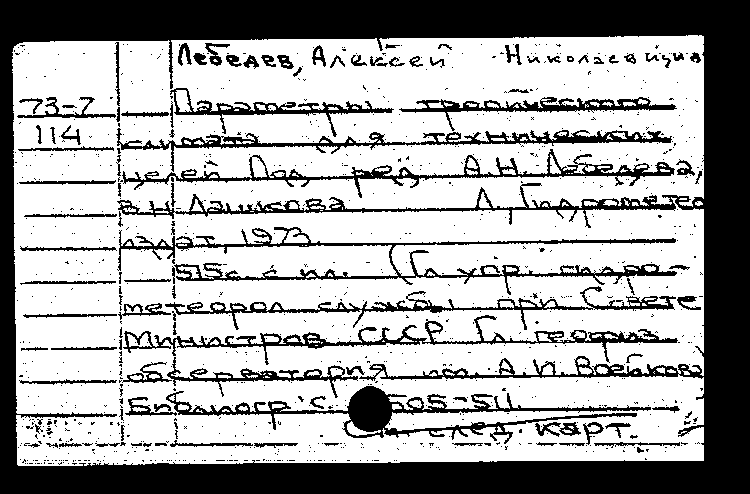 Лебедев, Алексей Николаевич
73-7 Параметры тропического
114 климата для технических
целей Под ред. А.Н. Лебедева,
В.Н. Лашкова. Л., Гидрометео
издат, 1973.
515с. с ил. (Гл упр. гидро-
метеорол службы при Совете
Министров СССР Гл. геофиз.
обсерватория им. А.И. Воейкова)
Библиогр: с. 505-511.
См. след. карт.